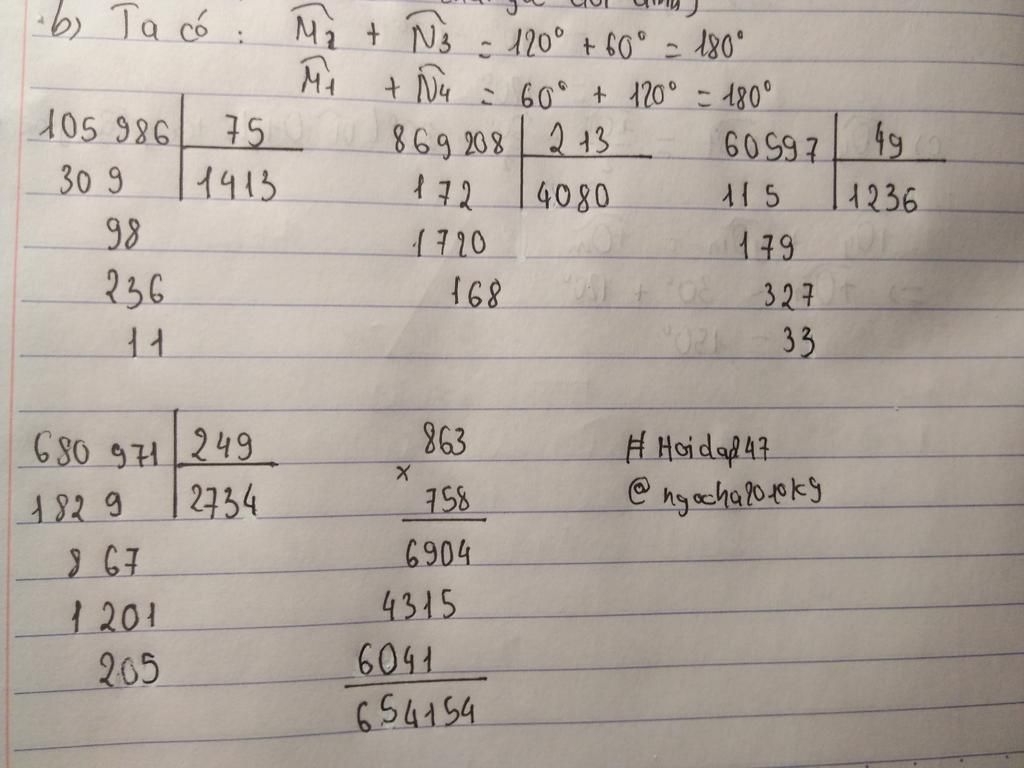 b) Ta có : M̂2 + N̂3 = 120° + 60° = 180°
M̂1 + N̂4 = 60° + 120° = 180°
105 986 75
309 1413
98
236
11
869 208 213
172 4080
1720
168
60597 49
115 1236
179
327
33
680 971 249
182 9 2734
8 67
1 201
205
863
x
758
6904
4315
6041
654154
# Hoidap247
@ngocha2010kg